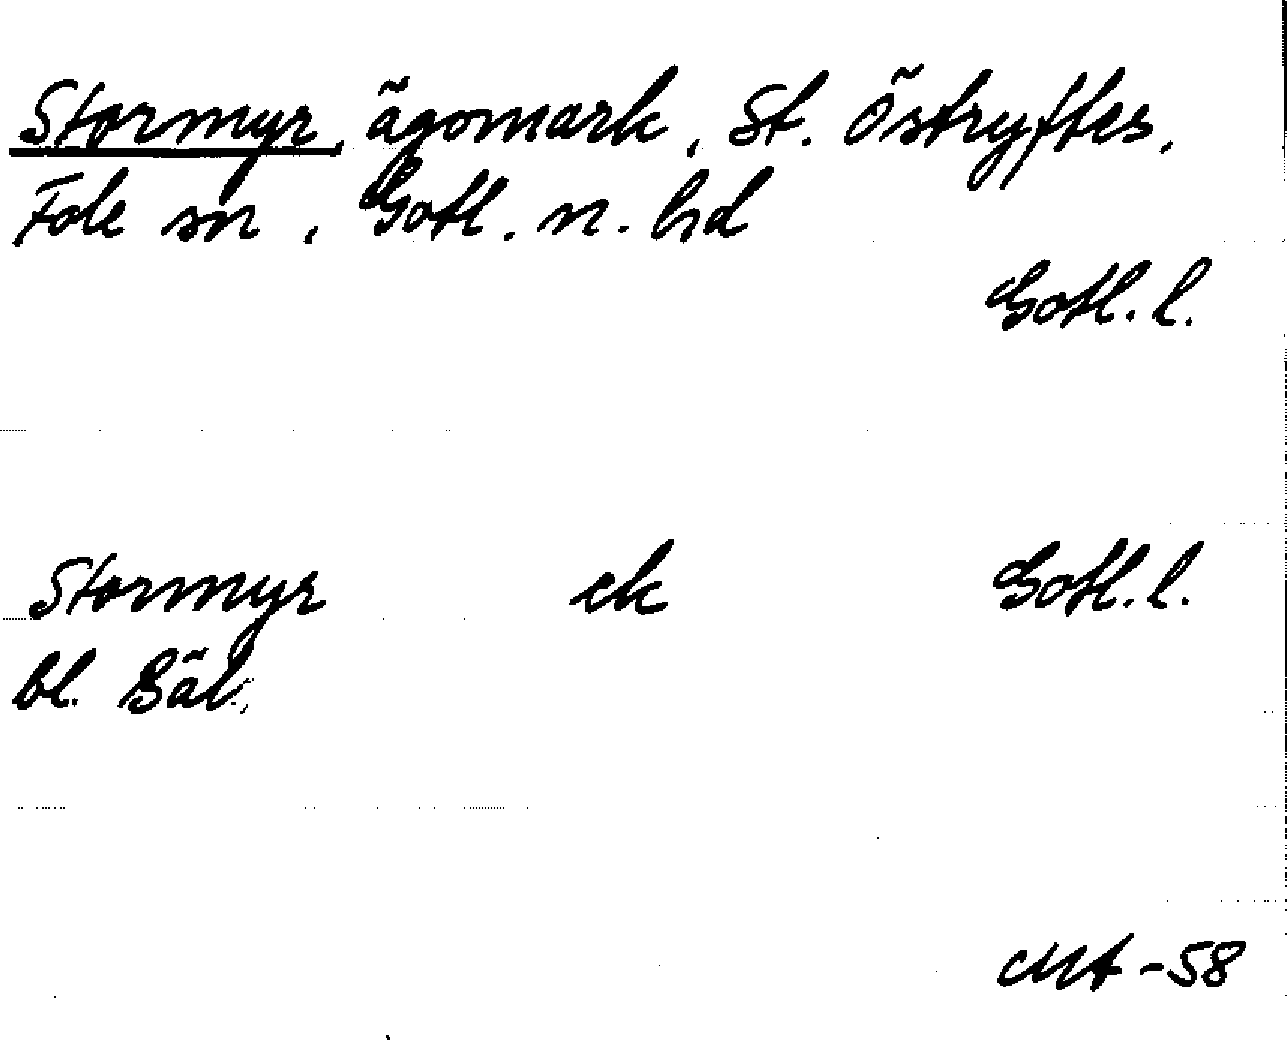 Stormyr, ägomark, St. Östryftes,
Fole sn, Gotl. n. hd
Gotl. l.
Stormyr ek Gotl. l.
bl. Bäl.
MA -58